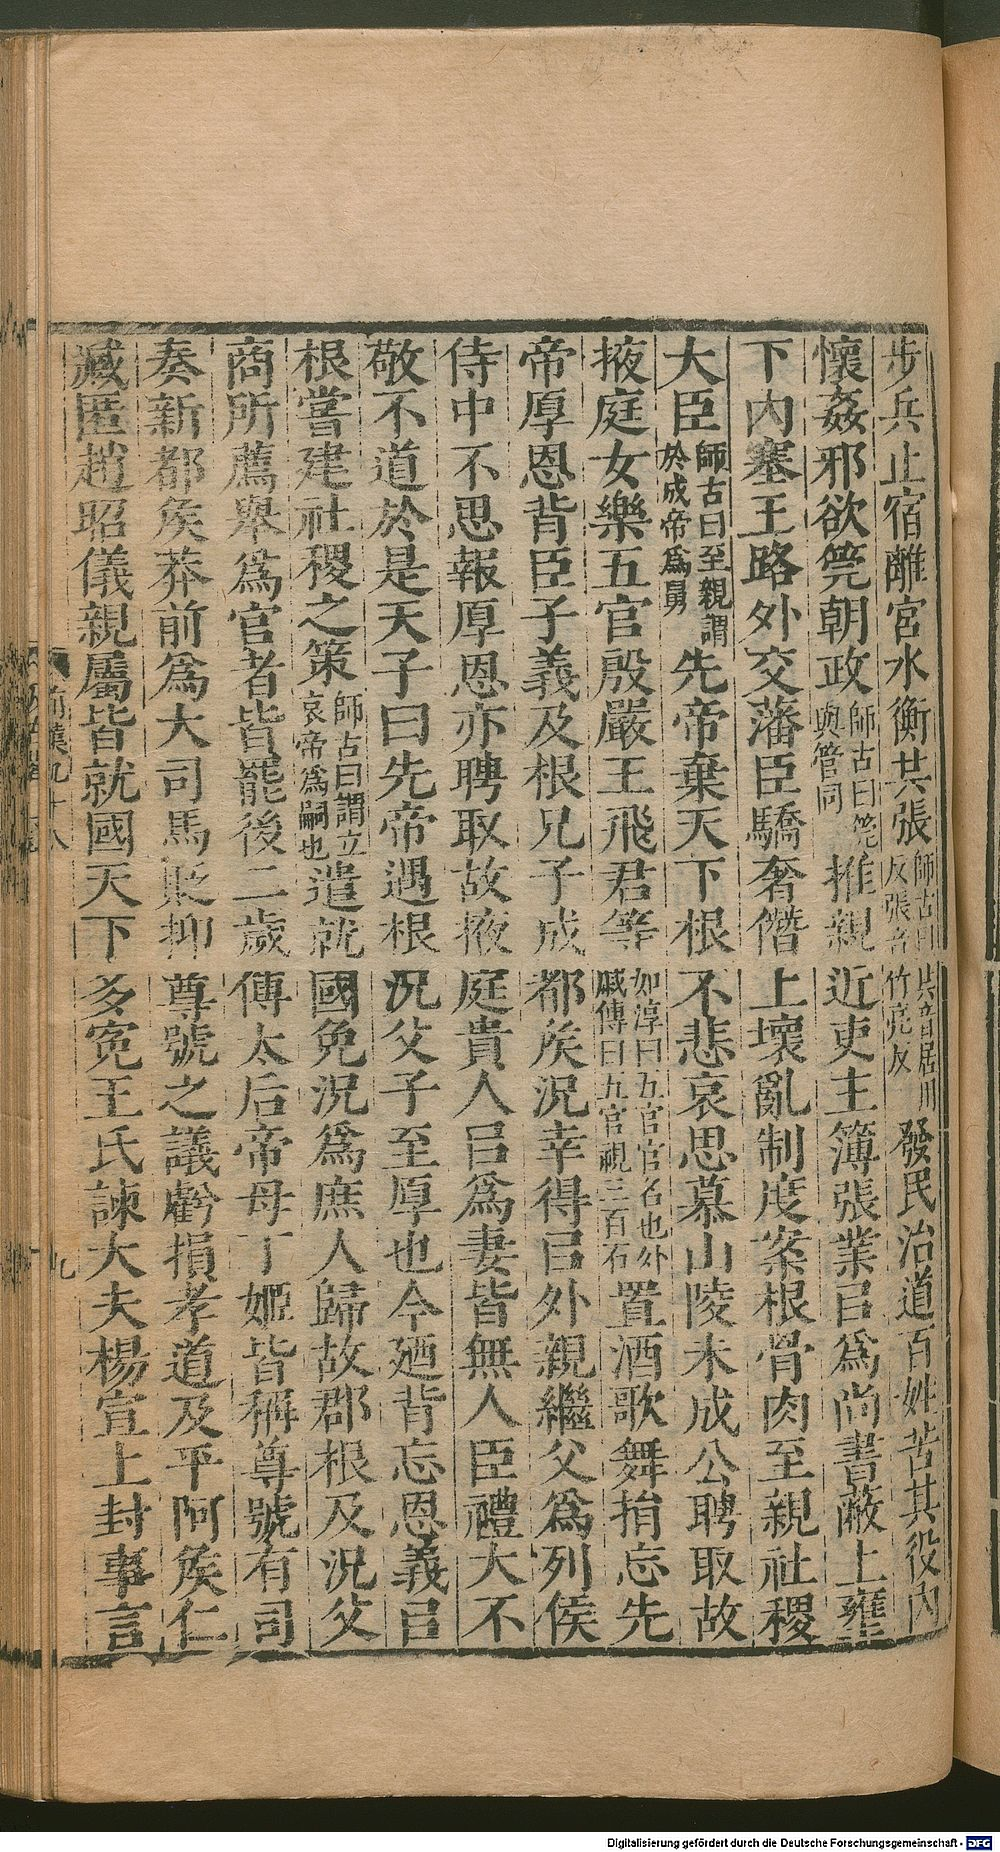 步兵止宿離宮水衡共張師古曰共音居用反張音竹亮反發民治道百姓苦其役內
懷姦邪欲筦朝政師古曰筦與管同推親近吏主簿張業㠯爲尚書蔽上壅
下內塞王路外交藩臣驕奢僭上壞亂制度案根骨肉至親社稷
大臣師古曰至親謂於成帝爲舅先帝棄天下根不悲哀思慕山陵未成公聘取故
掖庭女樂五官殷嚴王飛君等如淳曰五官官名也外戚傳曰五官視三百石置酒歌舞捐忘先
帝厚恩背臣子義及根兄子成都矦況幸得㠯外親繼父爲列侯
侍中不思報厚恩亦聘取故掖庭貴人㠯爲妻皆無人臣禮大不
敬不道於是天子曰先帝遇根況父子至厚也今廼背忘恩義㠯
根嘗建社稷之策師古曰謂立哀帝爲嗣也遣就國免況爲庶人歸故郡根及況父
商所薦舉爲官者皆罷後二歲傅太后帝母丁姬皆稱尊號有司
奏新都矦莽前爲大司馬貶抑尊號之議虧損孝道及平阿矦仁
臧匿趙昭儀親屬皆就國天下多冤王氏諫大夫楊宣上封事言
前漢九十八
九
Digitalisierung gefördert durch die Deutsche Forschungsgemeinschaft - DFG